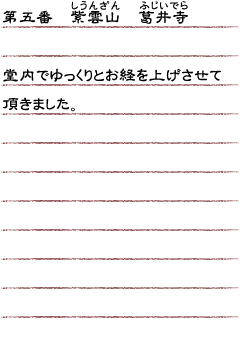 しうんざん ふじいでら
第五番 紫雲山 葛井寺
堂内でゆっくりとお経を上げさせて
頂きました。